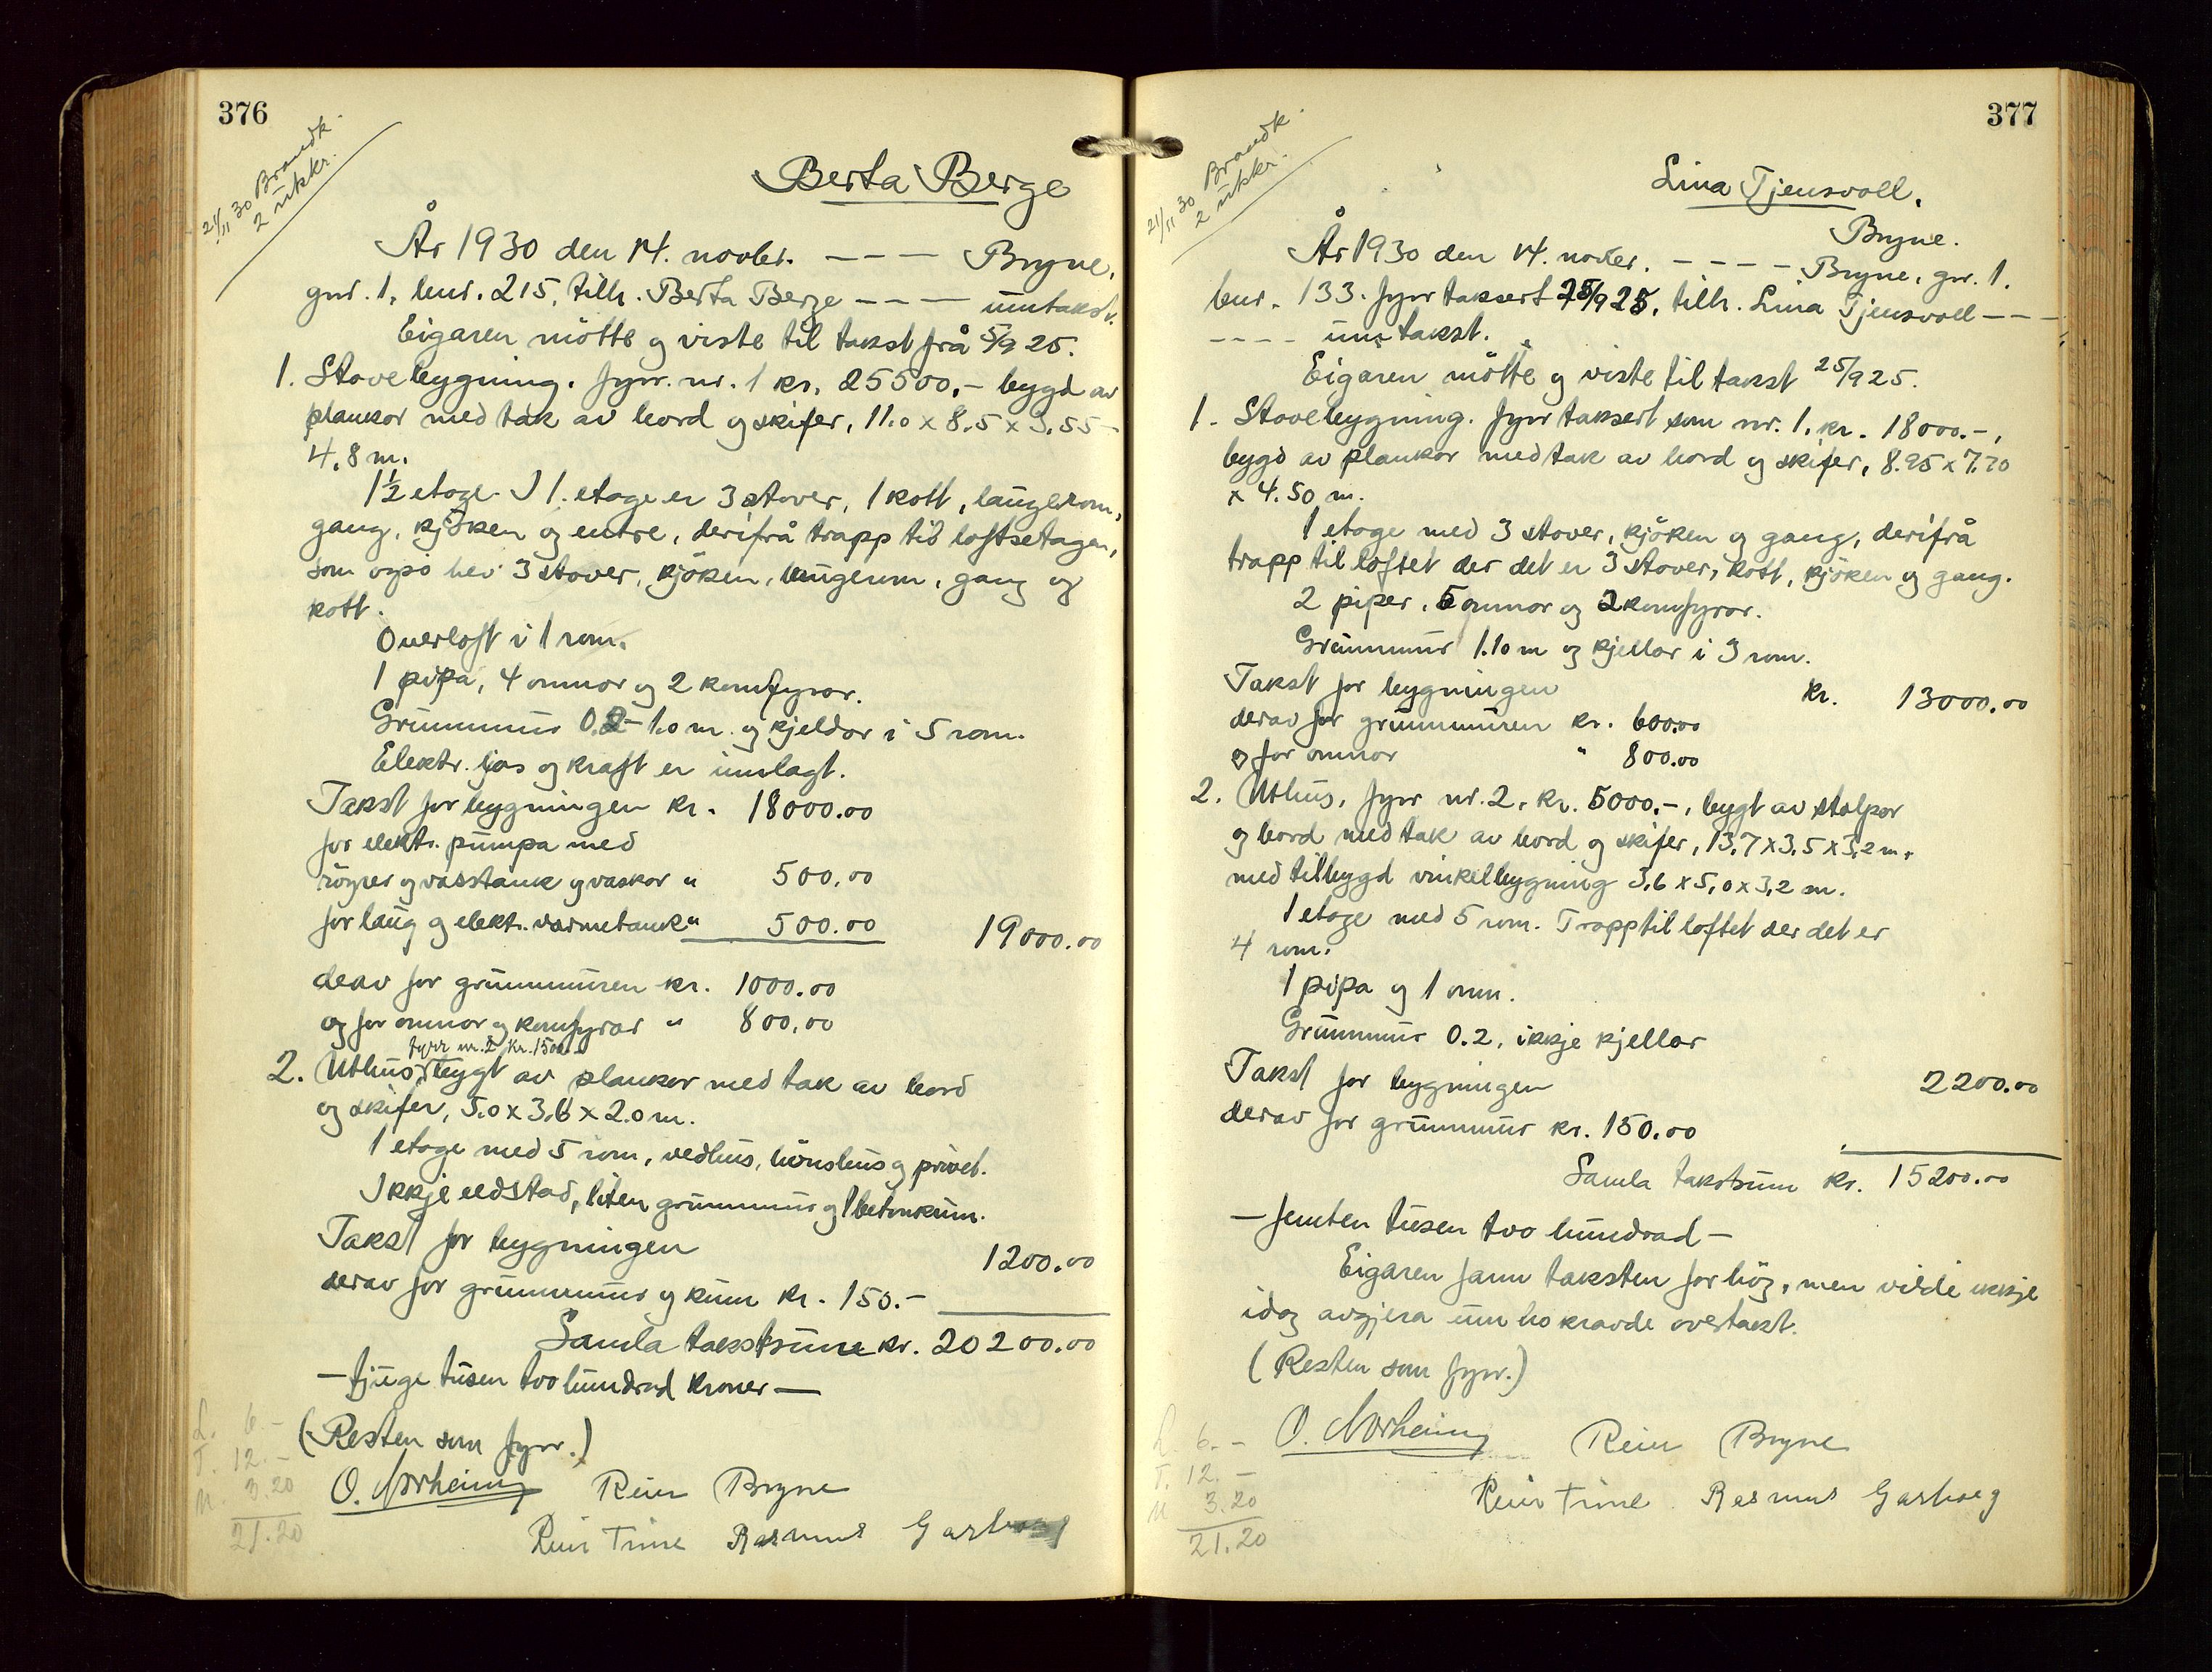 376
21/11 30 Brandk.
2 utskr.
Berta Berge
År 1930 den 14. novbr. - - - Bryne,
gnr. 1, bnr. 215, tilh. Berta Berge - - - umtakst.
Eigaren møtte og viste til takst frå 5/9 25.
1. Stovebygning. fyrr. nr. 1 kr. 25500,- bygd av
plankor med tak av bord og skifer, 11.0 x 8.5 x 3.55 -
4,8 m.
1 1/2 etage. I 1. etage er 3 stover, 1 kott, laugerom,
gang, kjöken og entre, derifrå trapp til loftsetagen,
som ogso hev 3 stover, kjöken, laugerum, gang og
kott.
Overloft i 1 rom.
1 pipa, 4 omnor og 2 komfyrar.
Grunnmur 0.2 - 1.0 m. og kjeldor i 5 rom.
Elektr. ljos og kraft er innlagt.
Takst for bygningen kr. 18000.00
for elektr. pumpa med
röyrer og vasstank og vaskor " 500.00
for laug og elektr. varmetank " 500.00 19000.00
derav for grunnmuren kr. 1000.00
og for omnor og komfyrar " 800.00
fyrr nr. 2 kr. 1500.-
2. Uthus, bygt av plankor med tak av bord
og skifer, 5.0 x 3,6 x 2.0 m.
1 etage med 5 rom, vedhus, hönshus og privet.
Ikkje eldstad, liten grunnmur og 1 betonkum.
Takst for bygningen 1200.00
derav for grunnmur og kum kr. 150.-
Samla takstsum kr. 20200.00
- tjuge tusen tvo hundrad kroner -
(Resten som fyrr.)
O. Norheim Reier Bryne
Reier Time Rasmus Garborg
L. 6.-
T. 12.-
M. 3.20
21.20
377
21/11 30 Brandk.
2 utskr.
Lina Tjensvoll.
Bryne.
År 1930 den 14. novbr. - - - - Bryne, gnr. 1.
bnr. 133. fyrr taksert 25/9 25, tilh. Lina Tjensvoll - - -
- - - - umtakst.
Eigaren møtte og viste til takst 25/9 25.
1. Stovebygning. fyrr taksert som nr. 1. kr. 18000.-,
bygd av plankor med tak av bord og skifer, 8.95 x 7.70
x 4.50 m.
1 etage med 3 stover, kjöken og gang, derifrå
trapp til loftet der det er 3 stover, kott, kjöken og gang.
2 piper, 5 omnor og 2 komfyrar.
Grunnmur 1.10 m og kjellar i 3 rom.
Takst for bygningen kr. 13000.00
derav for grunnmuren kr. 600.00
og for omnor " 800.00
2. Uthus, fyrr nr. 2, kr. 5000.-, bygt av stolpar
og bord med tak av bord og skifer, 13,7 x 3,5 x 3,2 m,
med tilbygd vinkelbygning 3,6 x 5,0 x 3,2 m.
1 etage med 5 rom. Trapp til loftet der det er
4 rom.
1 pipa og 1 omn.
Grunnmur 0.2, ikkje kjellar
Takst for bygningen 2200.00
derav for grunnmur kr. 150.00
Samla takstsum kr. 15200.00
- femten tusen tvo hundrad -
Eigaren fann taksten for høg, men vilde ikkje
idag avgjera um ho kravde overtakst.
(Resten som fyrr.)
O. Norheim Reier Bryne
Reier Time Rasmus Garborg
L. 6.-
T. 12.-
M 3.20
21.20